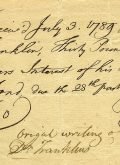 ceiv'd July 3. 1789
anklin, Thirty Poun
rs Interest of his
ond, due the 28th past
Origal writing o
Dr Franklins